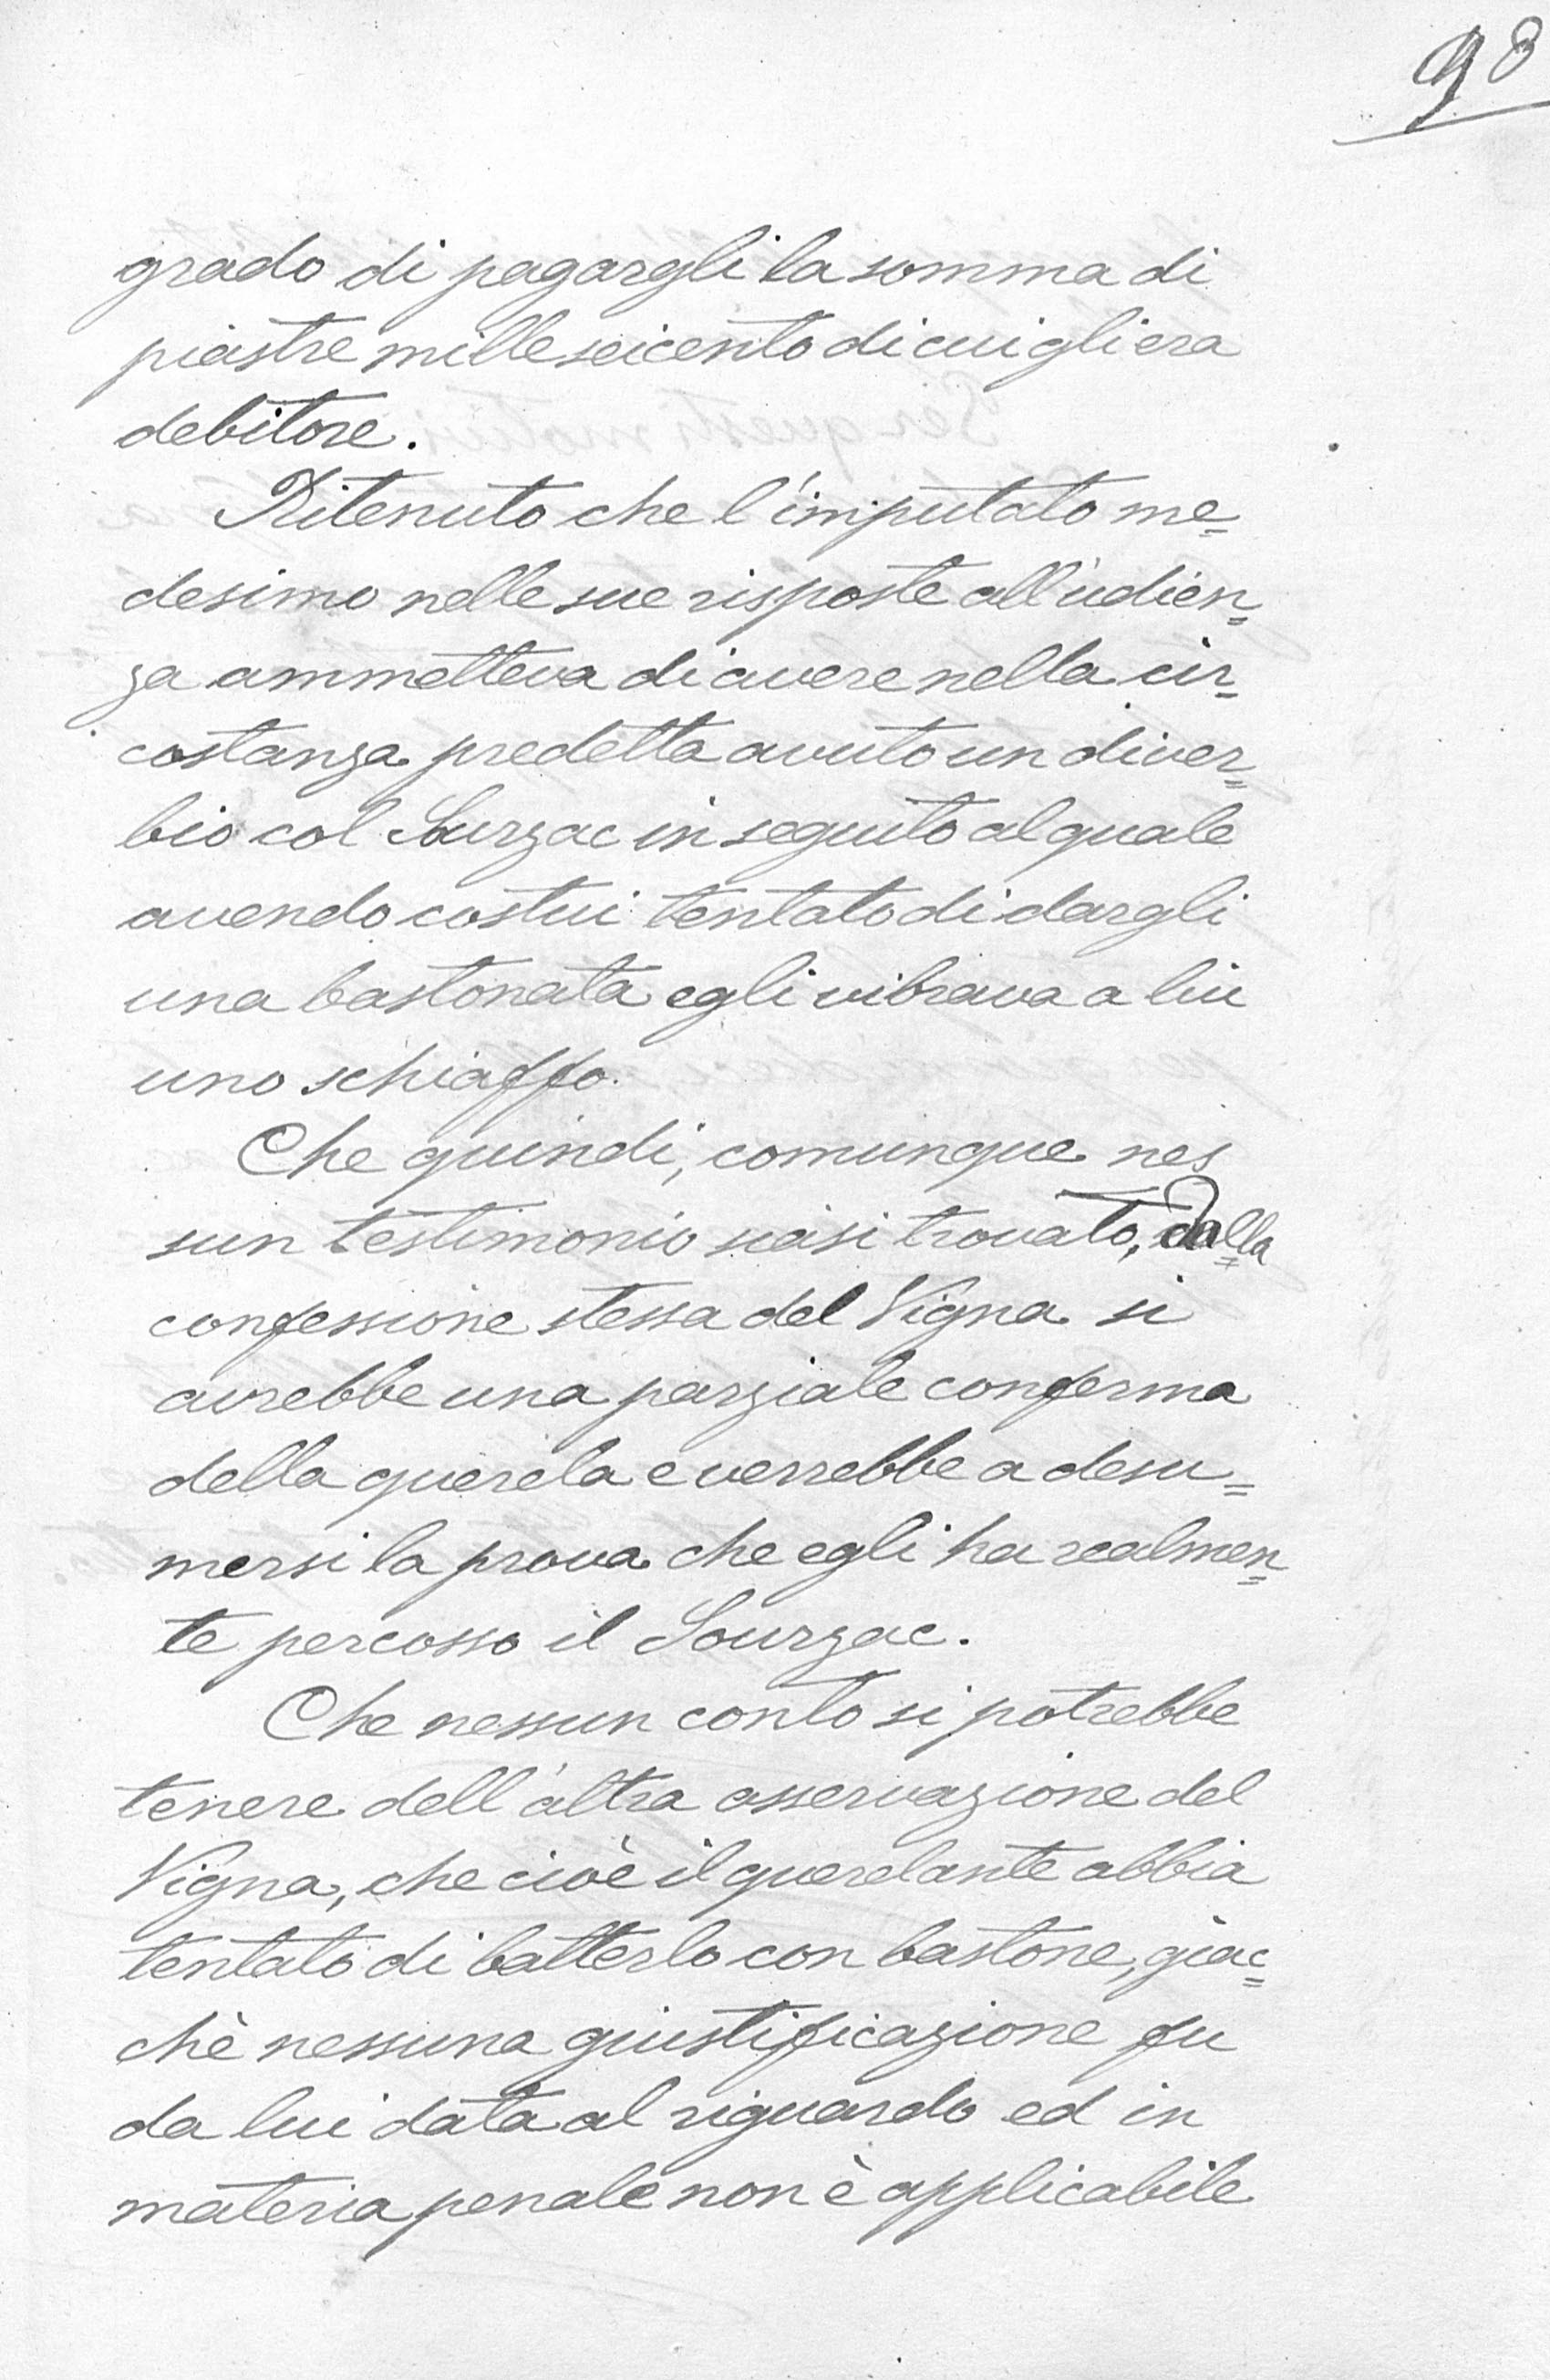 98
grado di pagargli la somma di
piastre mille seicento di cui gli era
debitore.
Ritenuto che l'imputato me=
desimo nelle sue risposte all'udien=
za ammetteva di avere nella cir=
costanza predetta avuto un diver=
bio col Sourzac in seguito al quale
avendo costui tentato di dargli
una bastonata egli vibrava a lui
uno schiaffo.
Che quindi, comunque nes
sun testimonio siasi trovato, dalla
confessione stessa del Vigna si
avrebbe una parziale conferma
della querela e verrebbe a desu=
mersi la prova che egli ha realmen=
te percosso il Sourzac.
Che nessun conto si potrebbe
tenere dell'altra osservazione del
Vigna, che cioè il querelante abbia
tentato di batterlo con bastone, giac=
chè nessuna giustificazione fu
da lui data al riguardo ed in
materia penale non è applicabile